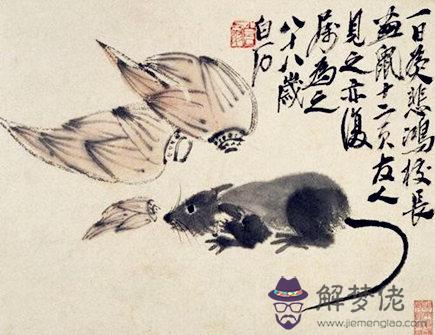 一日為悲鴻校長
畫鼠十二頁友人
見之亦復
屬為之
八十八歲
白石
解梦佬
http://www.jiemenglao.com/